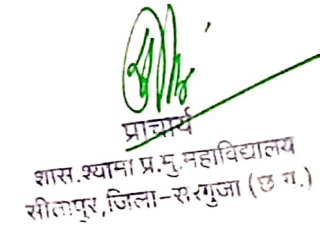 प्राचार्य
शास.श्यामा प्र.मु.महाविद्यालय
सीतापुर,जिला-सरगुजा (छ ग.)